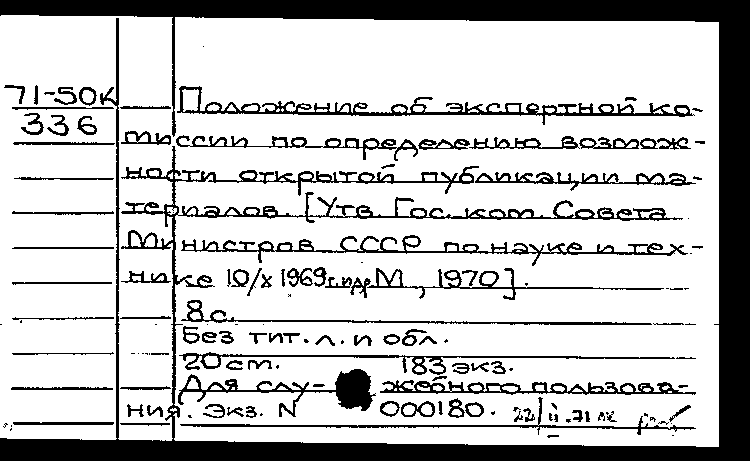 71-50к
336
Положение об экспертной ко-
миссии по определению возмож-
ности открытой публикации ма-
териалов. [Утв. Гос. ком. Совета
Министров СССР по науке и тех-
нике 10/X 1969г. и др. М, 1970].
8 с.
Без тит. л. и обл.
20 см. 183 экз.
Для слу- жебного пользова-
ния. Экз. N 000180. 22/II.71